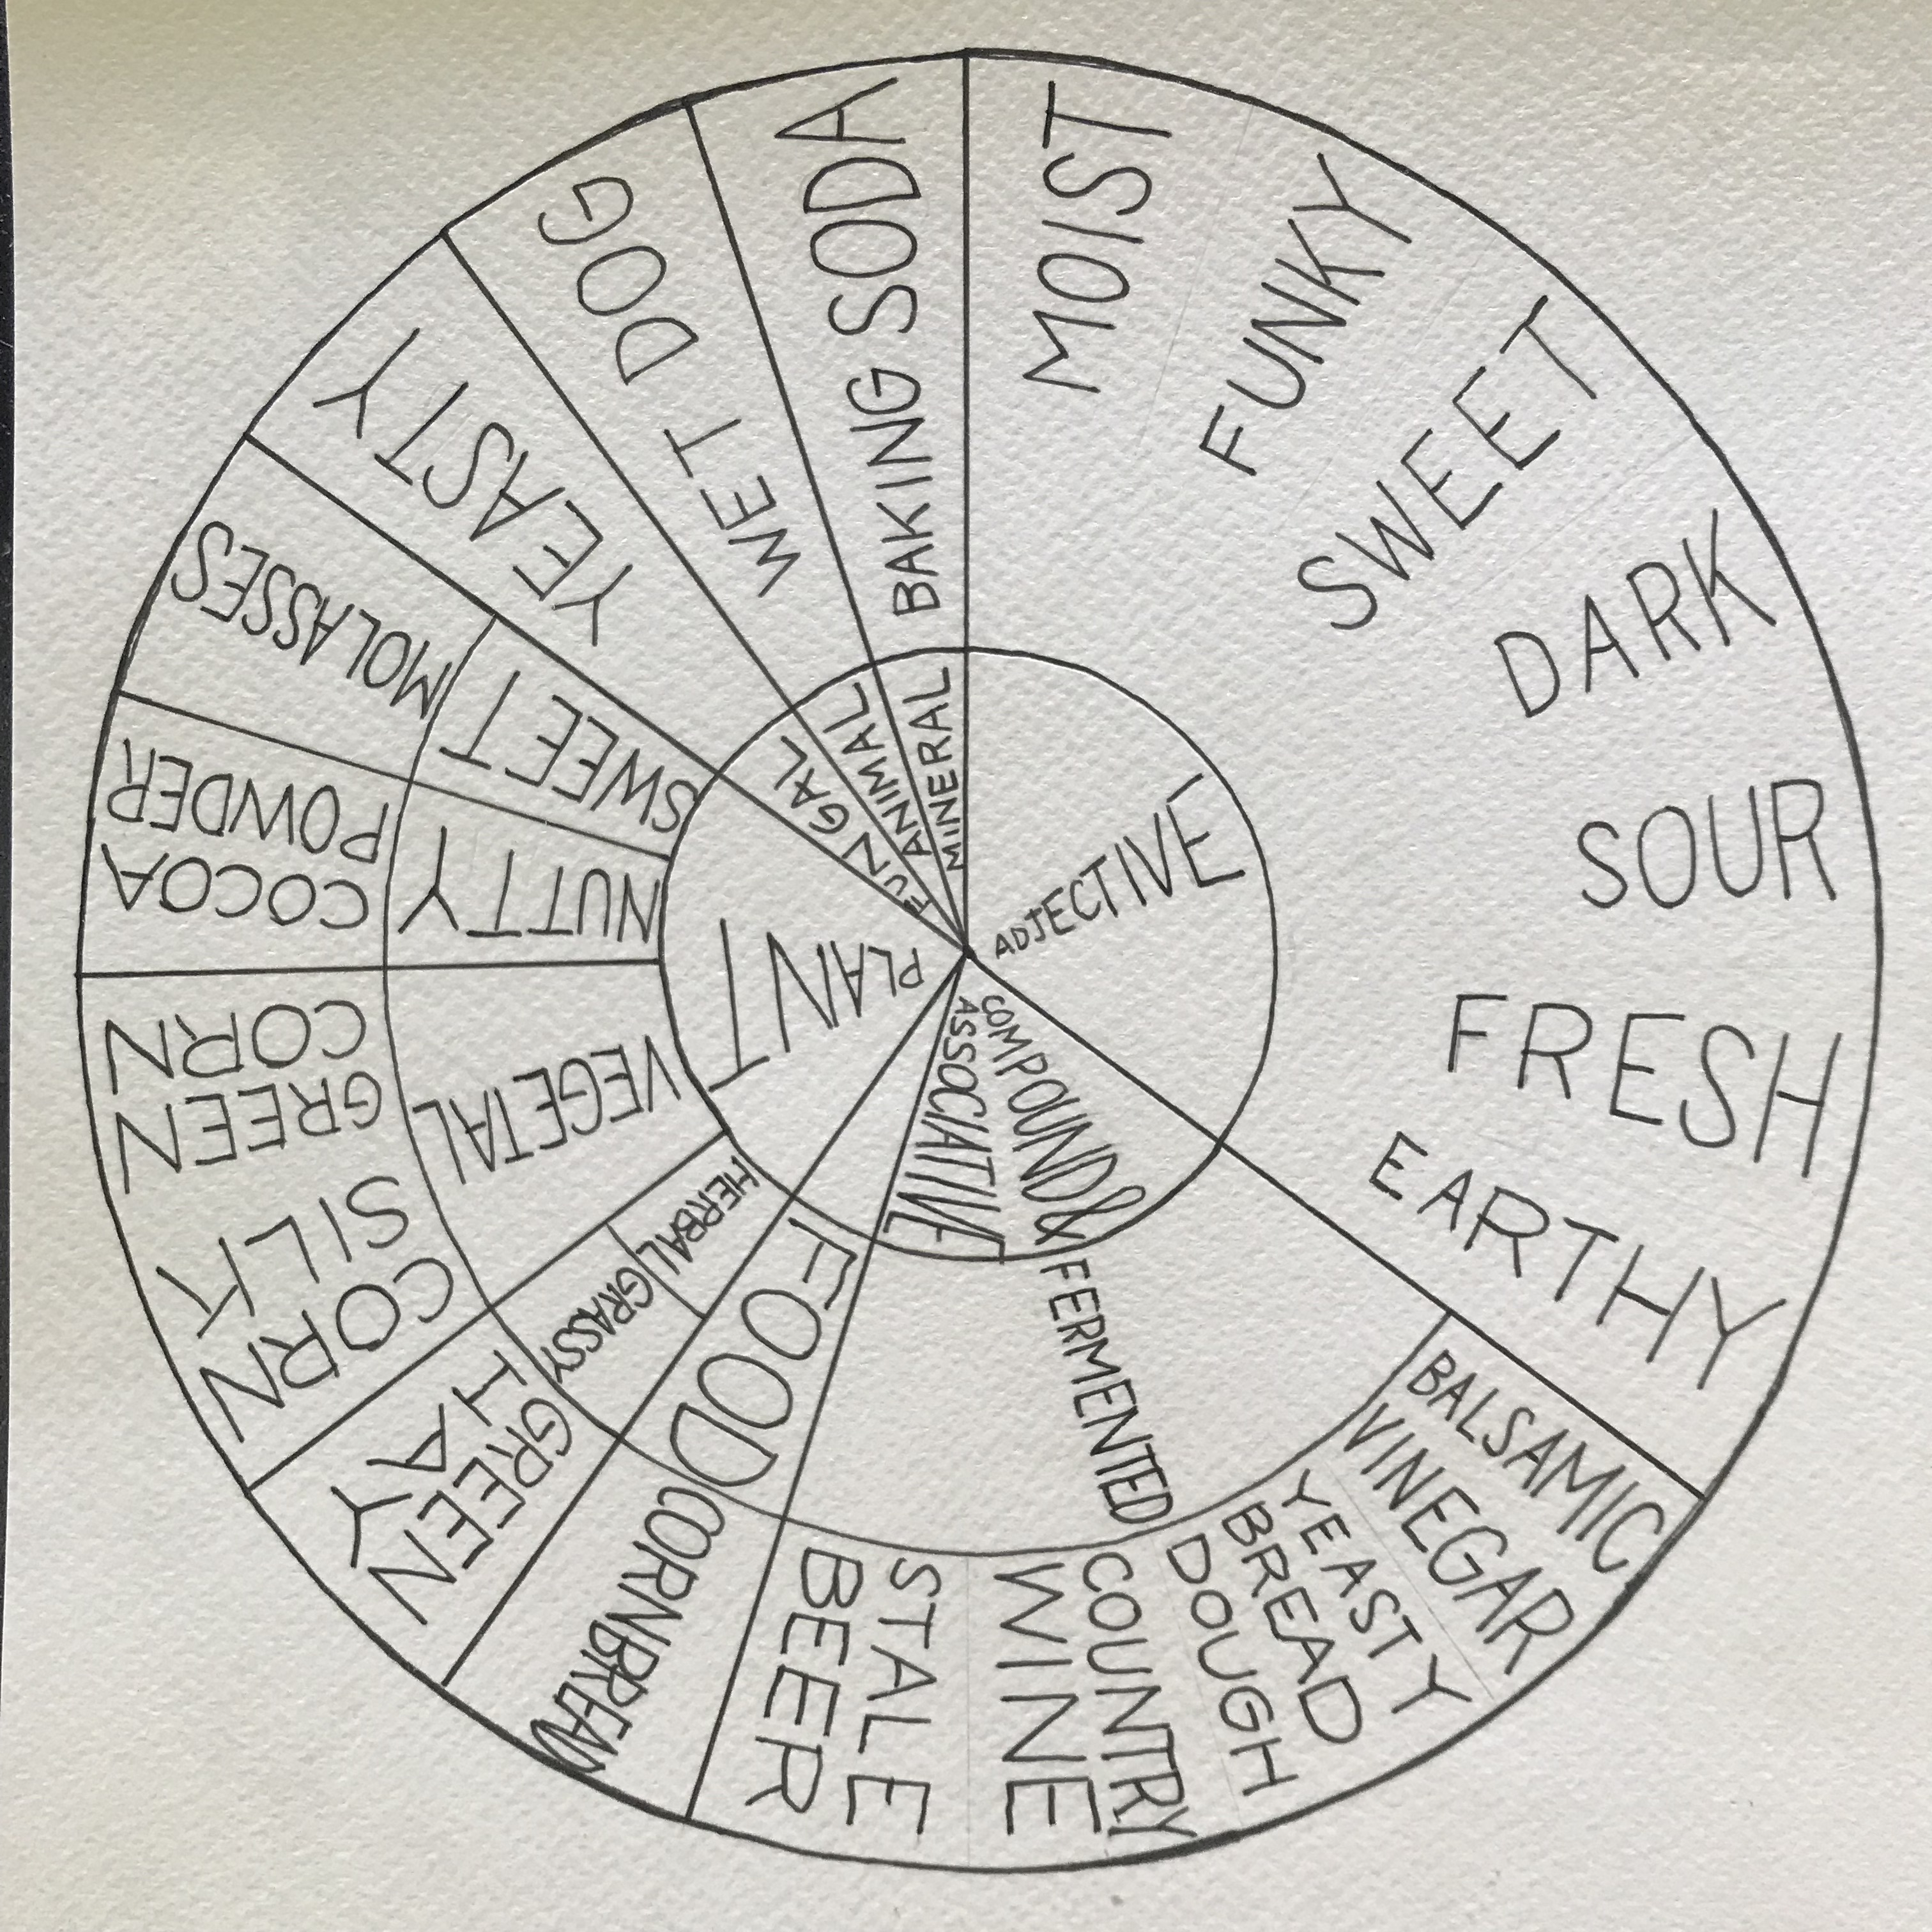 ADJECTIVE
MOIST
FUNKY
SWEET
DARK
SOUR
FRESH
EARTHY
COMPOUND &
ASSOCIATIVE
FERMENTED
BALSAMIC
VINEGAR
YEASTY
BREAD
DOUGH
COUNTRY
WINE
STALE
BEER
FOOD
CORNBREAD
PLANT
HERBAL
GRASSY
GREEN
HAY
VEGETAL
CORN
SILK
GREEN
CORN
NUTTY
COCOA
POWDER
SWEET
MOLASSES
FUNGAL
YEASTY
ANIMAL
WET DOG
MINERAL
BAKING SODA